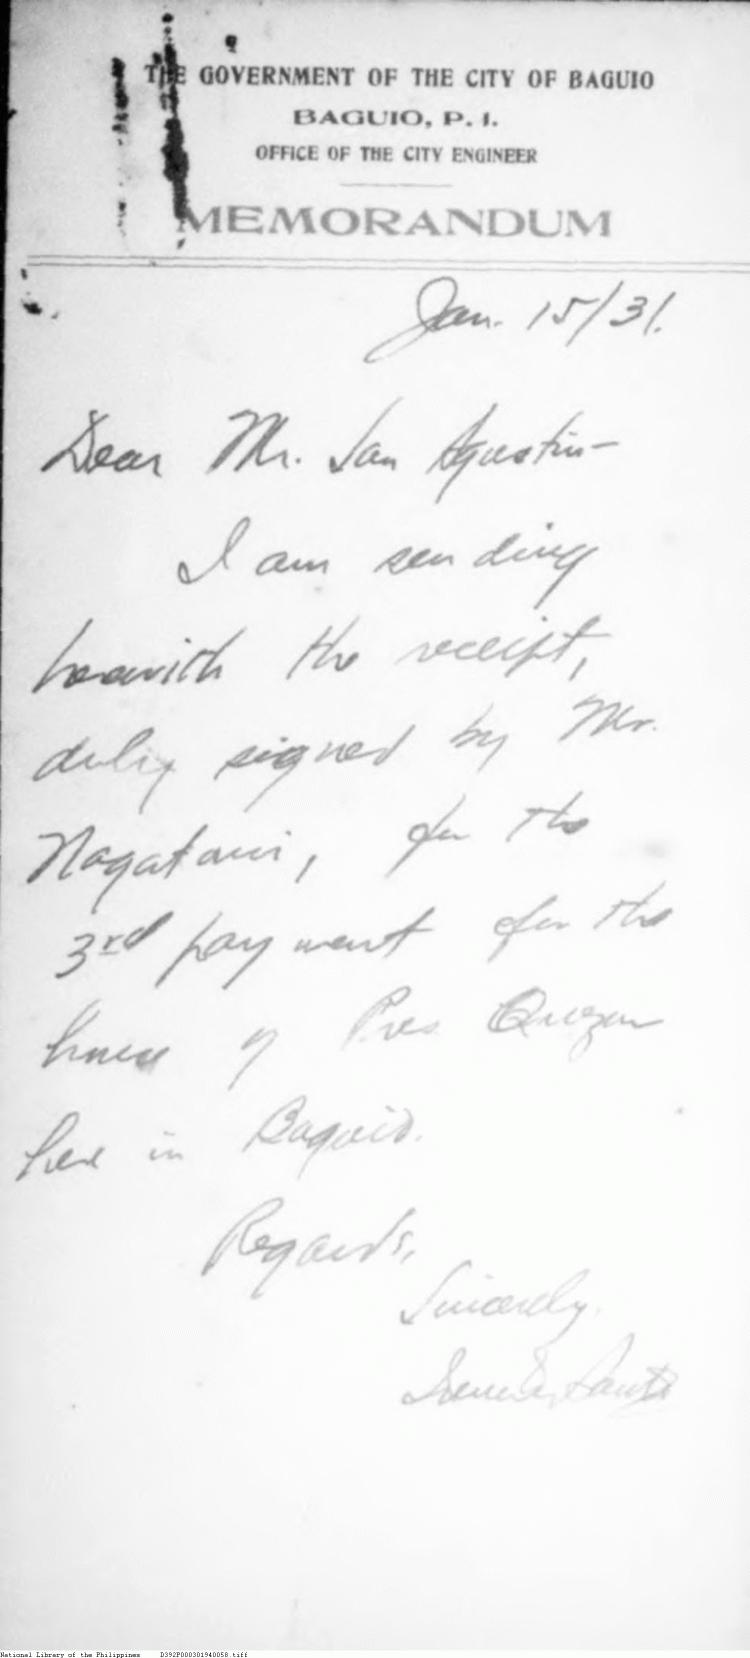 THE GOVERNMENT OF THE CITY OF BAGUIO
BAGUIO, P. I.
OFFICE OF THE CITY ENGINEER
MEMORANDUM
Jan. 15/31.
Dear Mr. San Agustin—
I am sending
herewith the receipt,
duly signed by Mr.
Nagatani, for the
3rd payment for the
house of Pres Quezon
here in Baguio.
Regards,
Sincerely,
National Library of the Philippines D392P000301940058.tiff